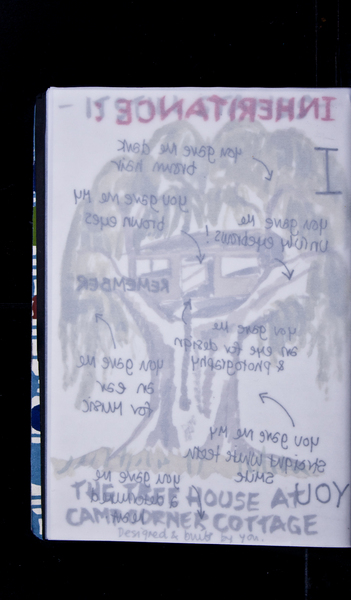 INHERITANCE?!
I
you gave me dark
brown hair
you gave me my
brown eyes
you gave me
unruly eyebrows!
REMEMBER
you gave me
an eye for design
& photography
you gave me
an ear
for music
you gave me my
straight white teeth
smile
you gave me
THE TREE HOUSE AT
JOY
CAMP CORNER COTTAGE
Designed & built by you.